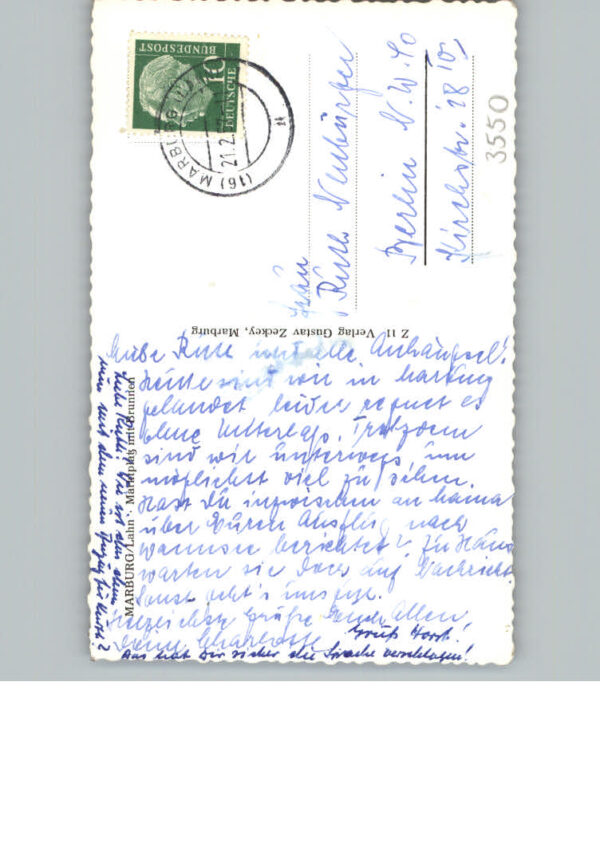 10
DEUTSCHE
BUNDESPOST
(16) MARBURG
21.2.
Frau
Ruth Neubürger
Berlin N.W. 40
Kirchstr. 28
3550
Z 11 Verlag Gustav Zeckey, Marburg
MARBURG/Lahn · Marktplatz mit Brunnen
Liebe Ruth und alle Anhängsel!
Heute sind wir in Marburg
gelandet, leider regnet es
ohne Unterlass. Trotzdem
sind wir unterwegs um
möglichst viel zu sehen.
Hast Du inzwischen an Mama
über Euren Ausflug nach
Wannsee berichtet? Zu Haus
warten sie doch auf Nachricht.
Sonst geht's uns gut.
Herzliche Grüße Euch Allen,
Deine Charlotte
Gruß Horst!
Liebe Ruth! Wie ist das denn
nun mit dem neuen Anzug für
Das hat Dir sicher die Sprache verschlagen!